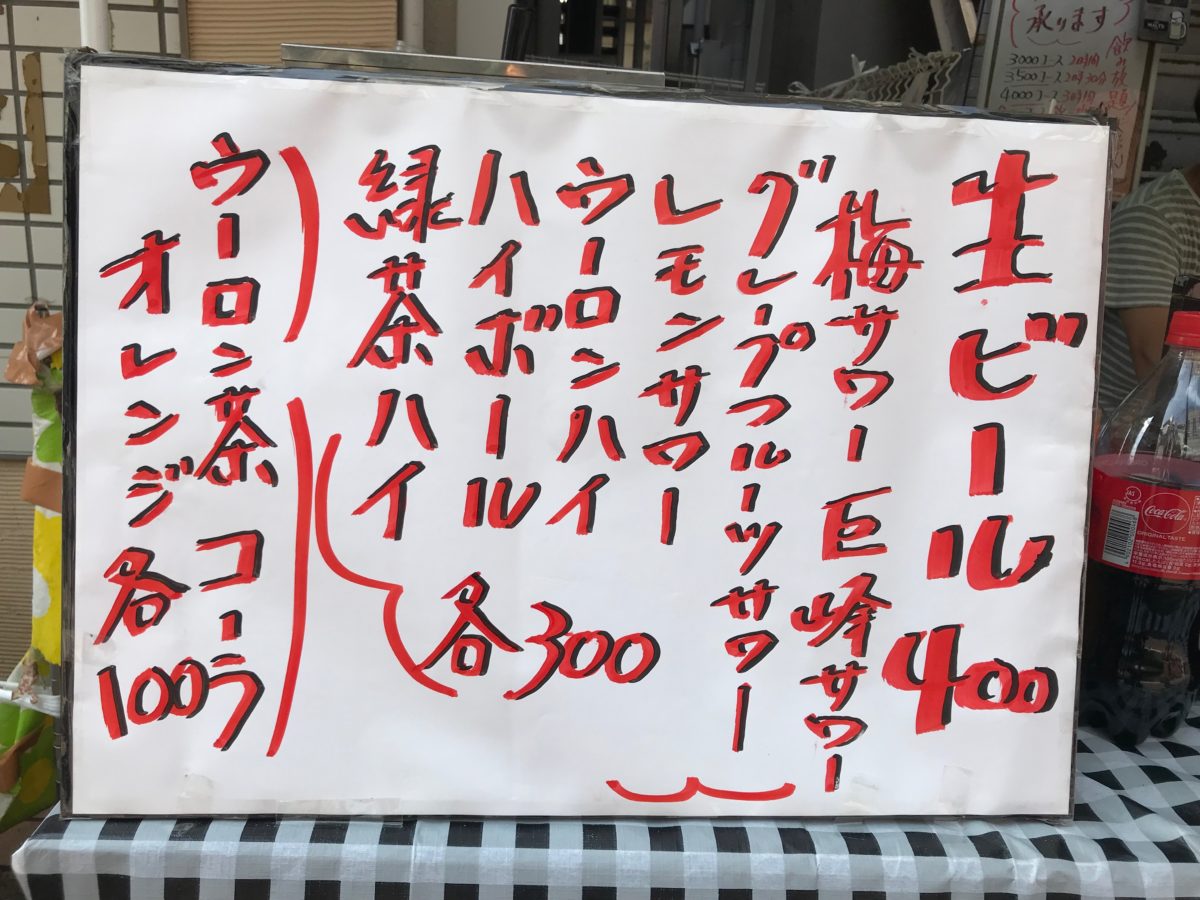 生ビール 400
梅サワー 巨峰サワー
グレープフルーツサワー
レモンサワー
ウーロンハイ
ハイボール
緑茶ハイ
各300
ウーロン茶 コーラ
オレンジ 各100
承ります
飲み放題
3000コース 2時間
3500コース 2時30分
4000コース 3時間
Coca-Cola
ORIGINAL TASTE